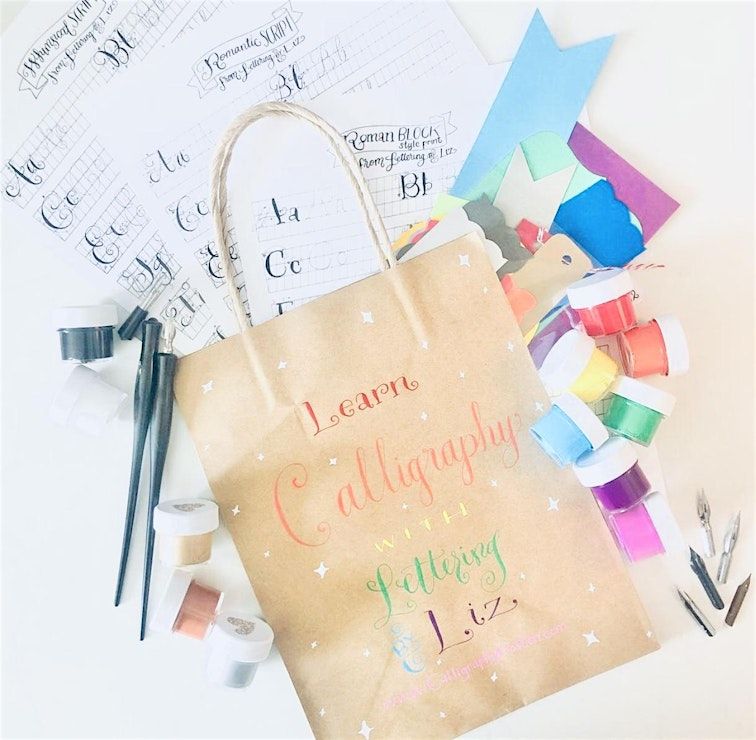 Whimsical SCRIPT
from Lettering by Liz
Bb
Aa
Cc
Romantic SCRIPT
from Lettering by Liz
Bb
Aa
Cc
Roman BLOCK
style print
from Lettering by Liz
Bb
Aa
Cc
Learn
Calligraphy
WITH
Lettering
By Liz